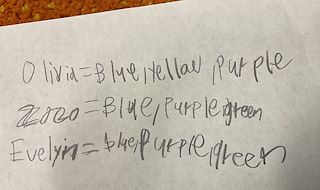 Olivia=Blue,yellow,Purple
Zoco=Blue,Purple,green
Evelyn=blue,Purple,green